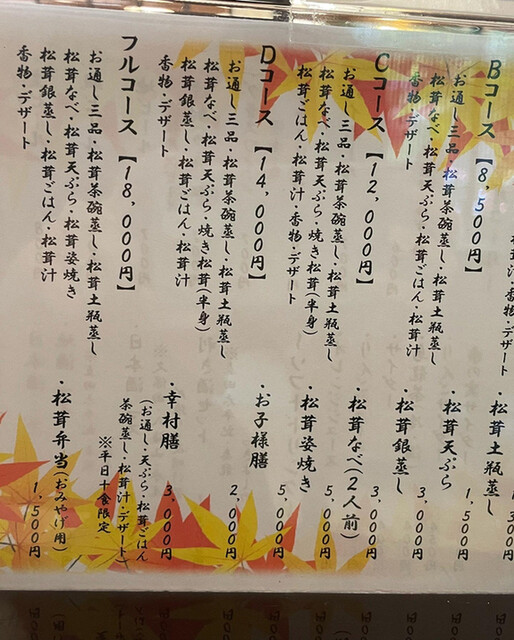 香物・デザート
Bコース 【8,500円】
お通し三品・松茸土瓶蒸し
松茸なべ・松茸天ぷら・松茸ごはん・松茸汁
香物・デザート
Cコース 【12,000円】
お通し三品・松茸茶碗蒸し・松茸土瓶蒸し
松茸なべ・松茸天ぷら・焼き松茸(半身)
松茸ごはん・松茸汁・香物・デザート
Dコース 【14,000円】
お通し三品・松茸茶碗蒸し・松茸土瓶蒸し
松茸なべ・松茸天ぷら・焼き松茸(半身)
松茸銀蒸し・松茸ごはん・松茸汁
香物・デザート
フルコース 【18,000円】
お通し三品・松茸茶碗蒸し・松茸土瓶蒸し
松茸なべ・松茸天ぷら・松茸姿焼き
松茸銀蒸し・松茸ごはん・松茸汁
香物・デザート
1,300円
・松茸土瓶蒸し
1,500円
・松茸天ぷら
3,000円
・松茸銀蒸し
3,000円
・松茸なべ(2人前)
5,000円
・松茸姿焼き
5,000円
・お子様膳
2,000円
・幸村膳 3,000円
(お通し・天ぷら・松茸ごはん
茶碗蒸し・松茸汁・デザート)
※平日十食限定
・松茸弁当(おみやげ用)
1,500円